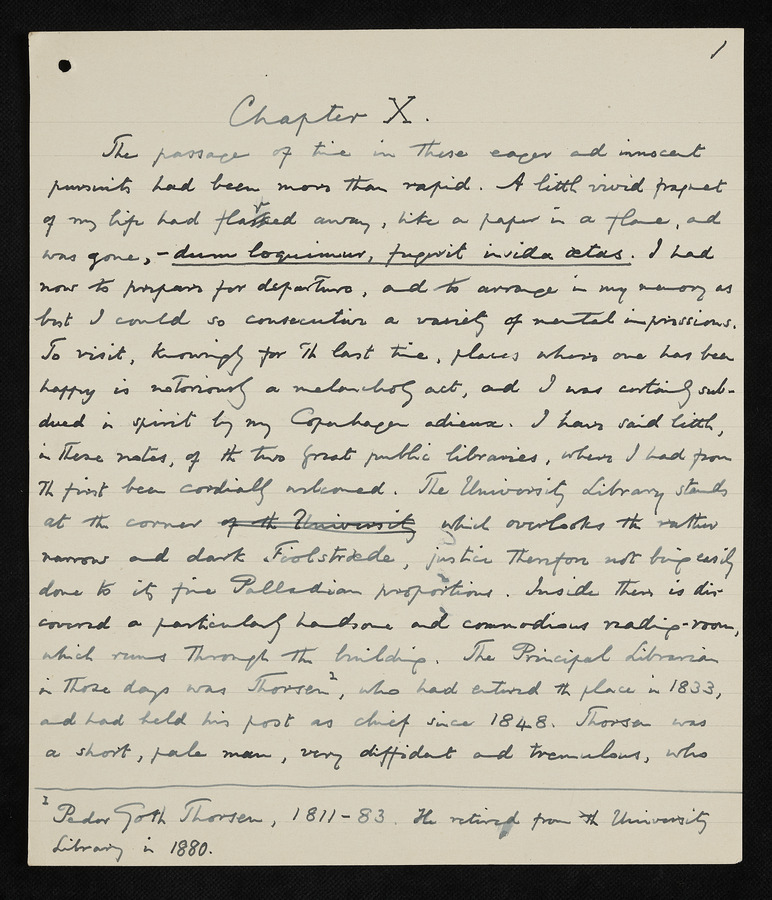 1
Chapter X.
The passage of time in these eager and innocent
pursuits had been more than rapid. A little vivid fragment
of my life had flashed away, like a paper in a flame, and
was gone, – dum loquimur, fugerit invida ætas. I had
now to prepare for departure, and to arrange in my memory as
best I could so consecutive a variety of mental impressions.
To visit, knowingly for the last time, places where one has been
happy is notoriously a melancholy act, and I was certainly sub-
dued in spirit by my Copenhagen adieux. I have said little,
in these notes, of the two great public libraries, where I had from
the first been cordially welcomed. The University Library stands
at the corner of the University which overlooks the rather
narrow and dark Fiolstræde, justice therefore not being easily
done to its fine Palladian proportions. Inside there is dis-
covered a particularly handsome and commodious reading-room,
which runs through the building. The Principal Librarian
in those days was Thorsen¹, who had entered the place in 1833,
and had held his post as chief since 1848. Thorsen was
a short, pale man, very diffident and tremulous, who
¹ Peder Goth Thorsen, 1811–83. He retired from the University
Library in 1880.